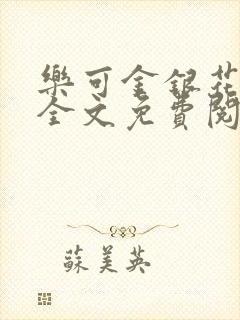 樂可金銀花
全文免費閱
蘇美英